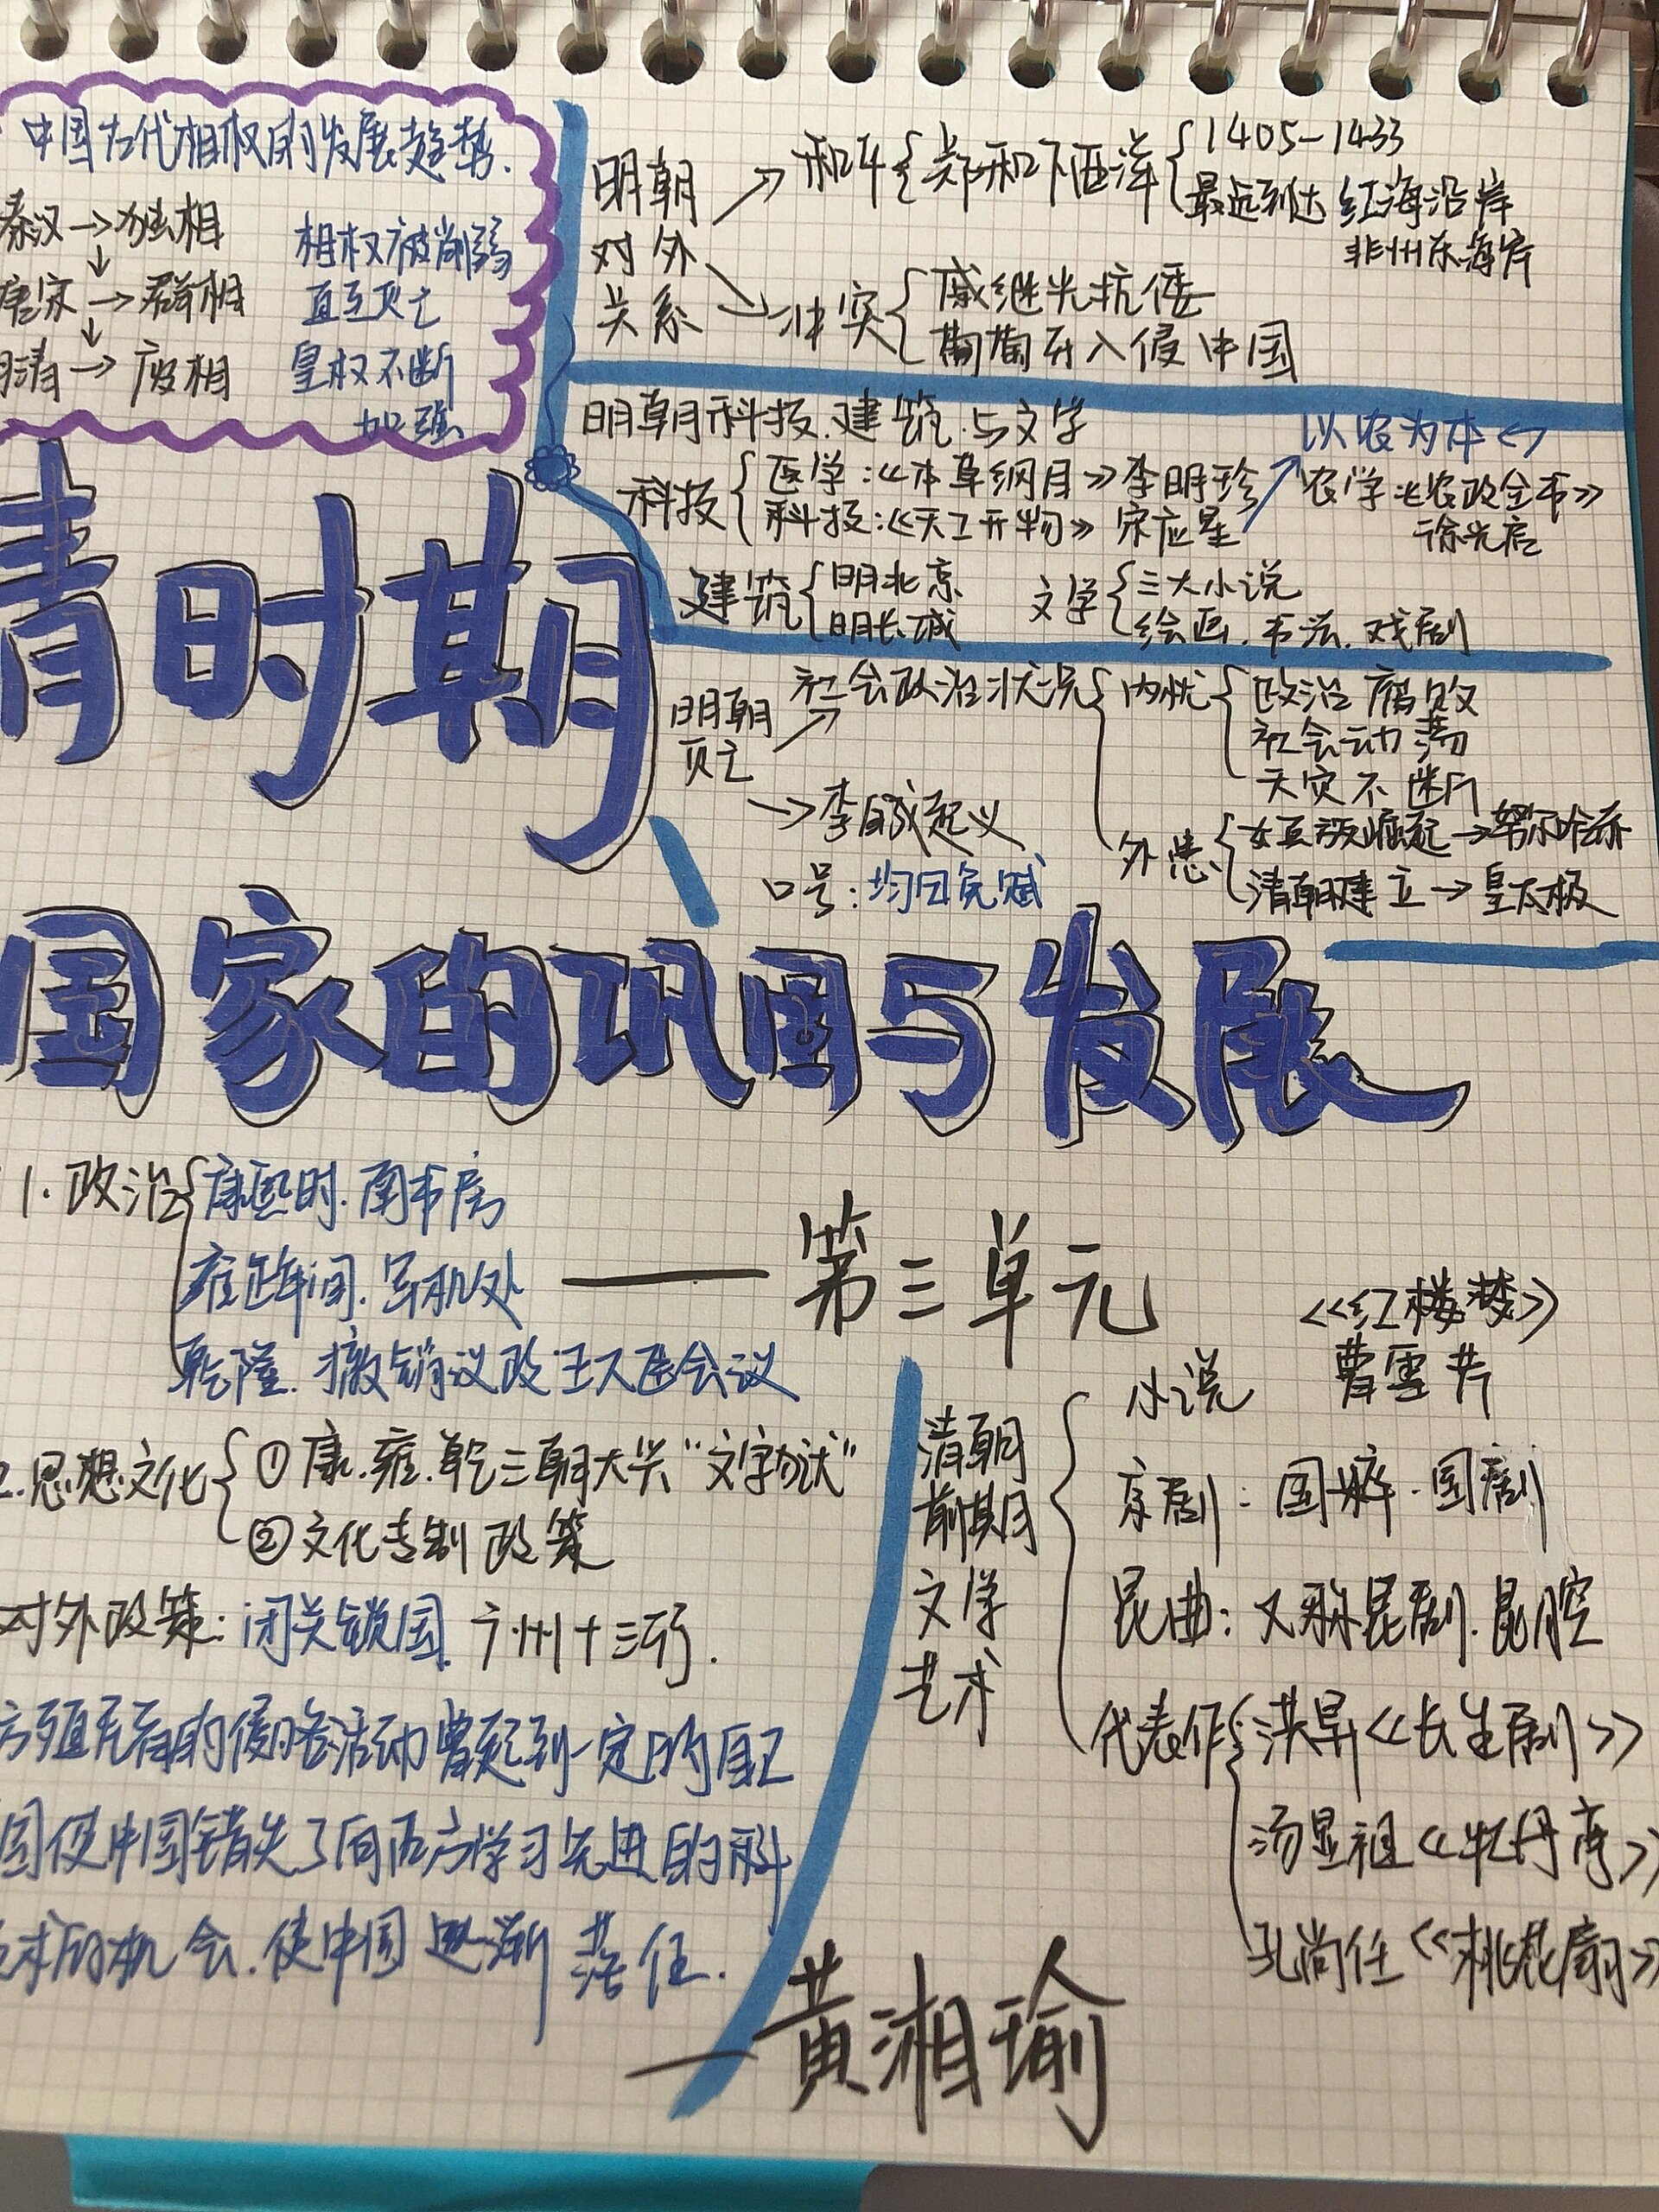 中国古代相权的发展趋势.
秦汉→独相
↓
唐宋→群相
↓
明清→废相
相权被削弱
直至灭亡
皇权不断
加强
明朝
对外
关系
和平{郑和下西洋{1405-1433
最远到达 红海沿岸
非州东海岸
冲突{戚继光抗倭
葡萄牙入侵中国
明朝科技.建筑.与文学
以农为本
科技{医学:《本草纲目》李明珍
科技:《天工开物》宋应星
农学《农政全书》
徐光启
建筑{明北京
明长城
文学{三大小说
绘画.书法.戏剧
清时期
明朝
灭亡
社会政治状况{内忧{政治腐败
社会动荡
天灾不断
外患{女真族崛起→努尔哈赤
清朝建立→皇太极
→李自成起义
口号:均田免赋
国家的巩固与发展
——第三单元
1.政治{康熙时.南书房
雍正年间.军机处
乾隆.撤销议政王大臣会议
2.思想文化{①康.雍.乾三朝大兴"文字狱"
②文化专制政策
对外政策:闭关锁国.广州十三行.
方殖民者的侵略活动曾起到一定的自卫
国使中国错失了向西方学习先进的科
术的机会.使中国逐渐落伍.
清朝
前期
文学
艺术
小说
《红楼梦》
曹雪芹
京剧:国粹.国剧
昆曲:又称昆剧.昆腔
代表作{洪昇《长生剧》
汤显祖《牡丹亭》
孔尚任《桃花扇》
—黄湘瑜